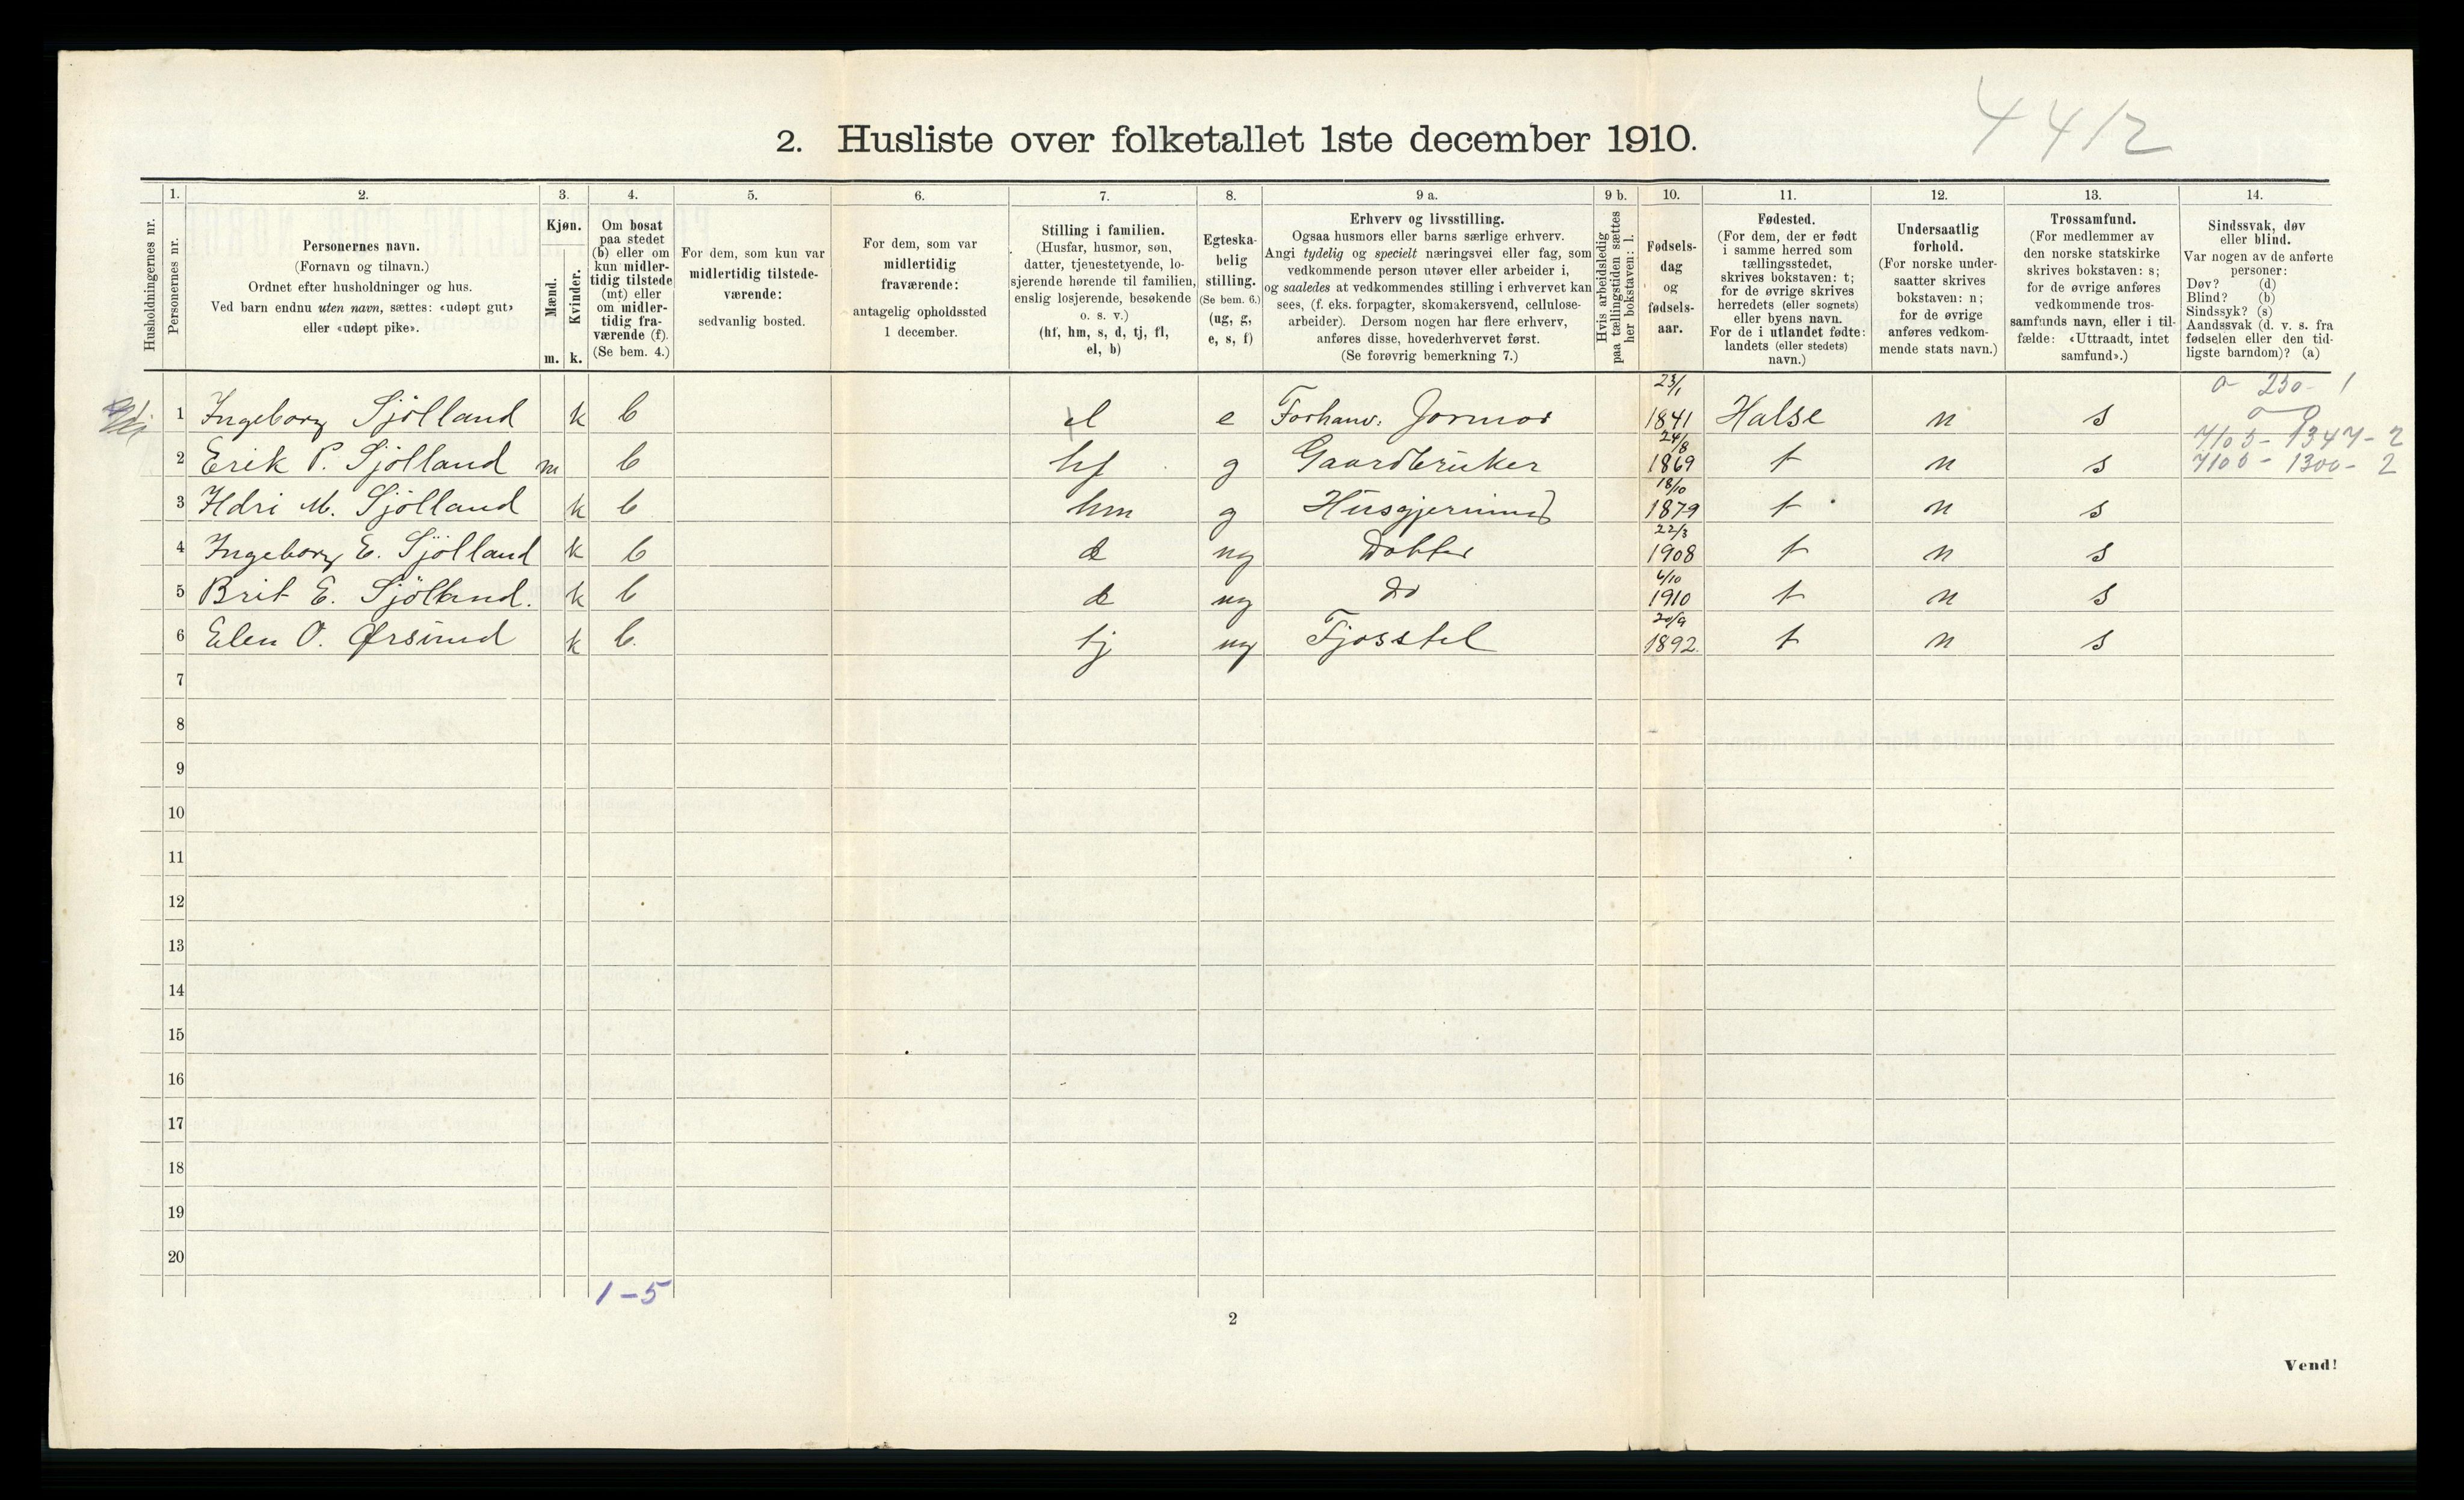 4412
2. Husliste over folketallet 1ste december 1910.
Husholdningernes nr.
1.
Personernes nr.
2.
Personernes navn.
(Fornavn og tilnavn.)
Ordnet efter husholdninger og hus.
Ved barn endnu uten navn, sættes: «udøpt gut»
eller «udøpt pike».
3.
Kjøn.
Mænd.
Kvinder.
m. k.
4.
Om bosat
paa stedet
(b) eller om
kun midler-
tidig tilstede
(mt) eller
om midler-
tidig fra-
værende (f).
(Se bem. 4.)
5.
For dem, som kun var
midlertidig tilstede-
værende:
sedvanlig bosted.
6.
For dem, som var
midlertidig
fraværende:
antagelig opholdssted
1 december.
7.
Stilling i familien.
(Husfar, husmor, søn,
datter, tjenestetyende, lo-
sjerende hørende til familien,
enslig losjerende, besøkende
o. s. v.)
(hf, hm, s, d, tj, fl,
el, b)
8.
Egteska-
belig
stilling.
(Se bem. 6.)
(ug, g,
e, s, f)
9 a.
Erhverv og livsstilling.
Ogsaa husmors eller barns særlige erhverv.
Angi tydelig og specielt næringsvei eller fag, som
vedkommende person utøver eller arbeider i,
og saaledes at vedkommendes stilling i erhvervet kan
sees, (f. eks. forpagter, skomakersvend, cellulose-
arbeider). Dersom nogen har flere erhverv,
anføres disse, hovederhvervet først.
(Se forøvrig bemerkning 7.)
9 b.
Hvis arbeidsledig
paa tællingstiden sættes
her bokstaven: l.
10.
Fødsels-
dag
og
fødsels-
aar.
11.
Fødested.
(For dem, der er født
i samme herred som
tællingsstedet,
skrives bokstaven: t;
for de øvrige skrives
herredets (eller sognets)
eller byens navn.
For de i utlandet fødte:
landets (eller stedets)
navn.)
12.
Undersaatlig
forhold.
(For norske under-
saatter skrives
bokstaven: n;
for de øvrige
anføres vedkom-
mende stats navn.)
13.
Trossamfund.
(For medlemmer av
den norske statskirke
skrives bokstaven: s;
for de øvrige anføres
vedkommende tros-
samfunds navn, eller i til-
fælde: «Uttraadt, intet
samfund».)
14.
Sindssvak, døv
eller blind.
Var nogen av de anførte
personer:
Døv? (d)
Blind? (b)
Sindssyk? (s)
Aandssvak (d. v. s. fra
fødselen eller den tid-
ligste barndom)? (a)
0 - 230 - 1
1 Ingeborg Sjölland k b el e Forhanv. Jormor 23/1 1841 Halse n s
7105 - 1347 - 2
2 Erik P. Sjölland m b hf g Gaardbruker 24/8 1869 t n s 7100 - 1300 - 2
3 M. Sjölland k b hm g 18/10 1879 t n s
4 Ingeborg E. Sjölland k b d ug Dotter 22/3 1908 t n s
5 Brit E. Sjölland. k b d ug do 6/10 1910 t n s
6 Elen O. Ørsund k b. tj ug Fjosstel 20/9 1892. t n s
7
8
9
10
11
12
13
14
15
16
17
18
19
20
1 - 5
2
Vend!